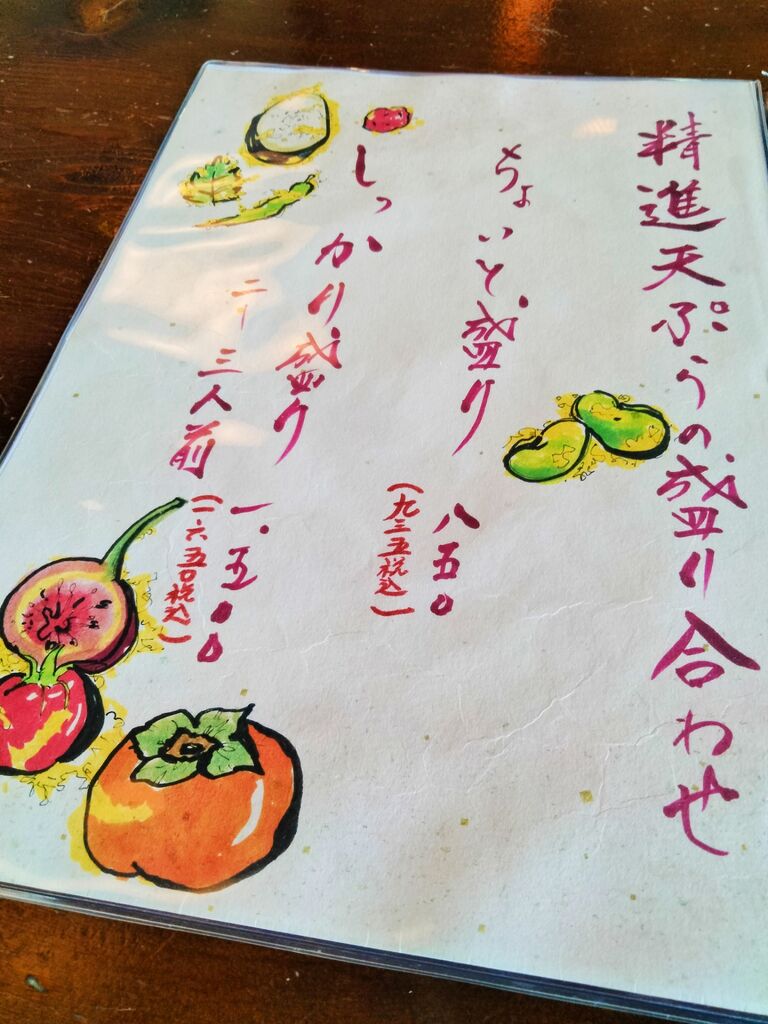 精進天ぷらの盛り合わせ
ちょいと盛り
八五〇
(九三五税込)
しっかり盛り
二〜三人前
一.五〇〇
(一六五〇税込)